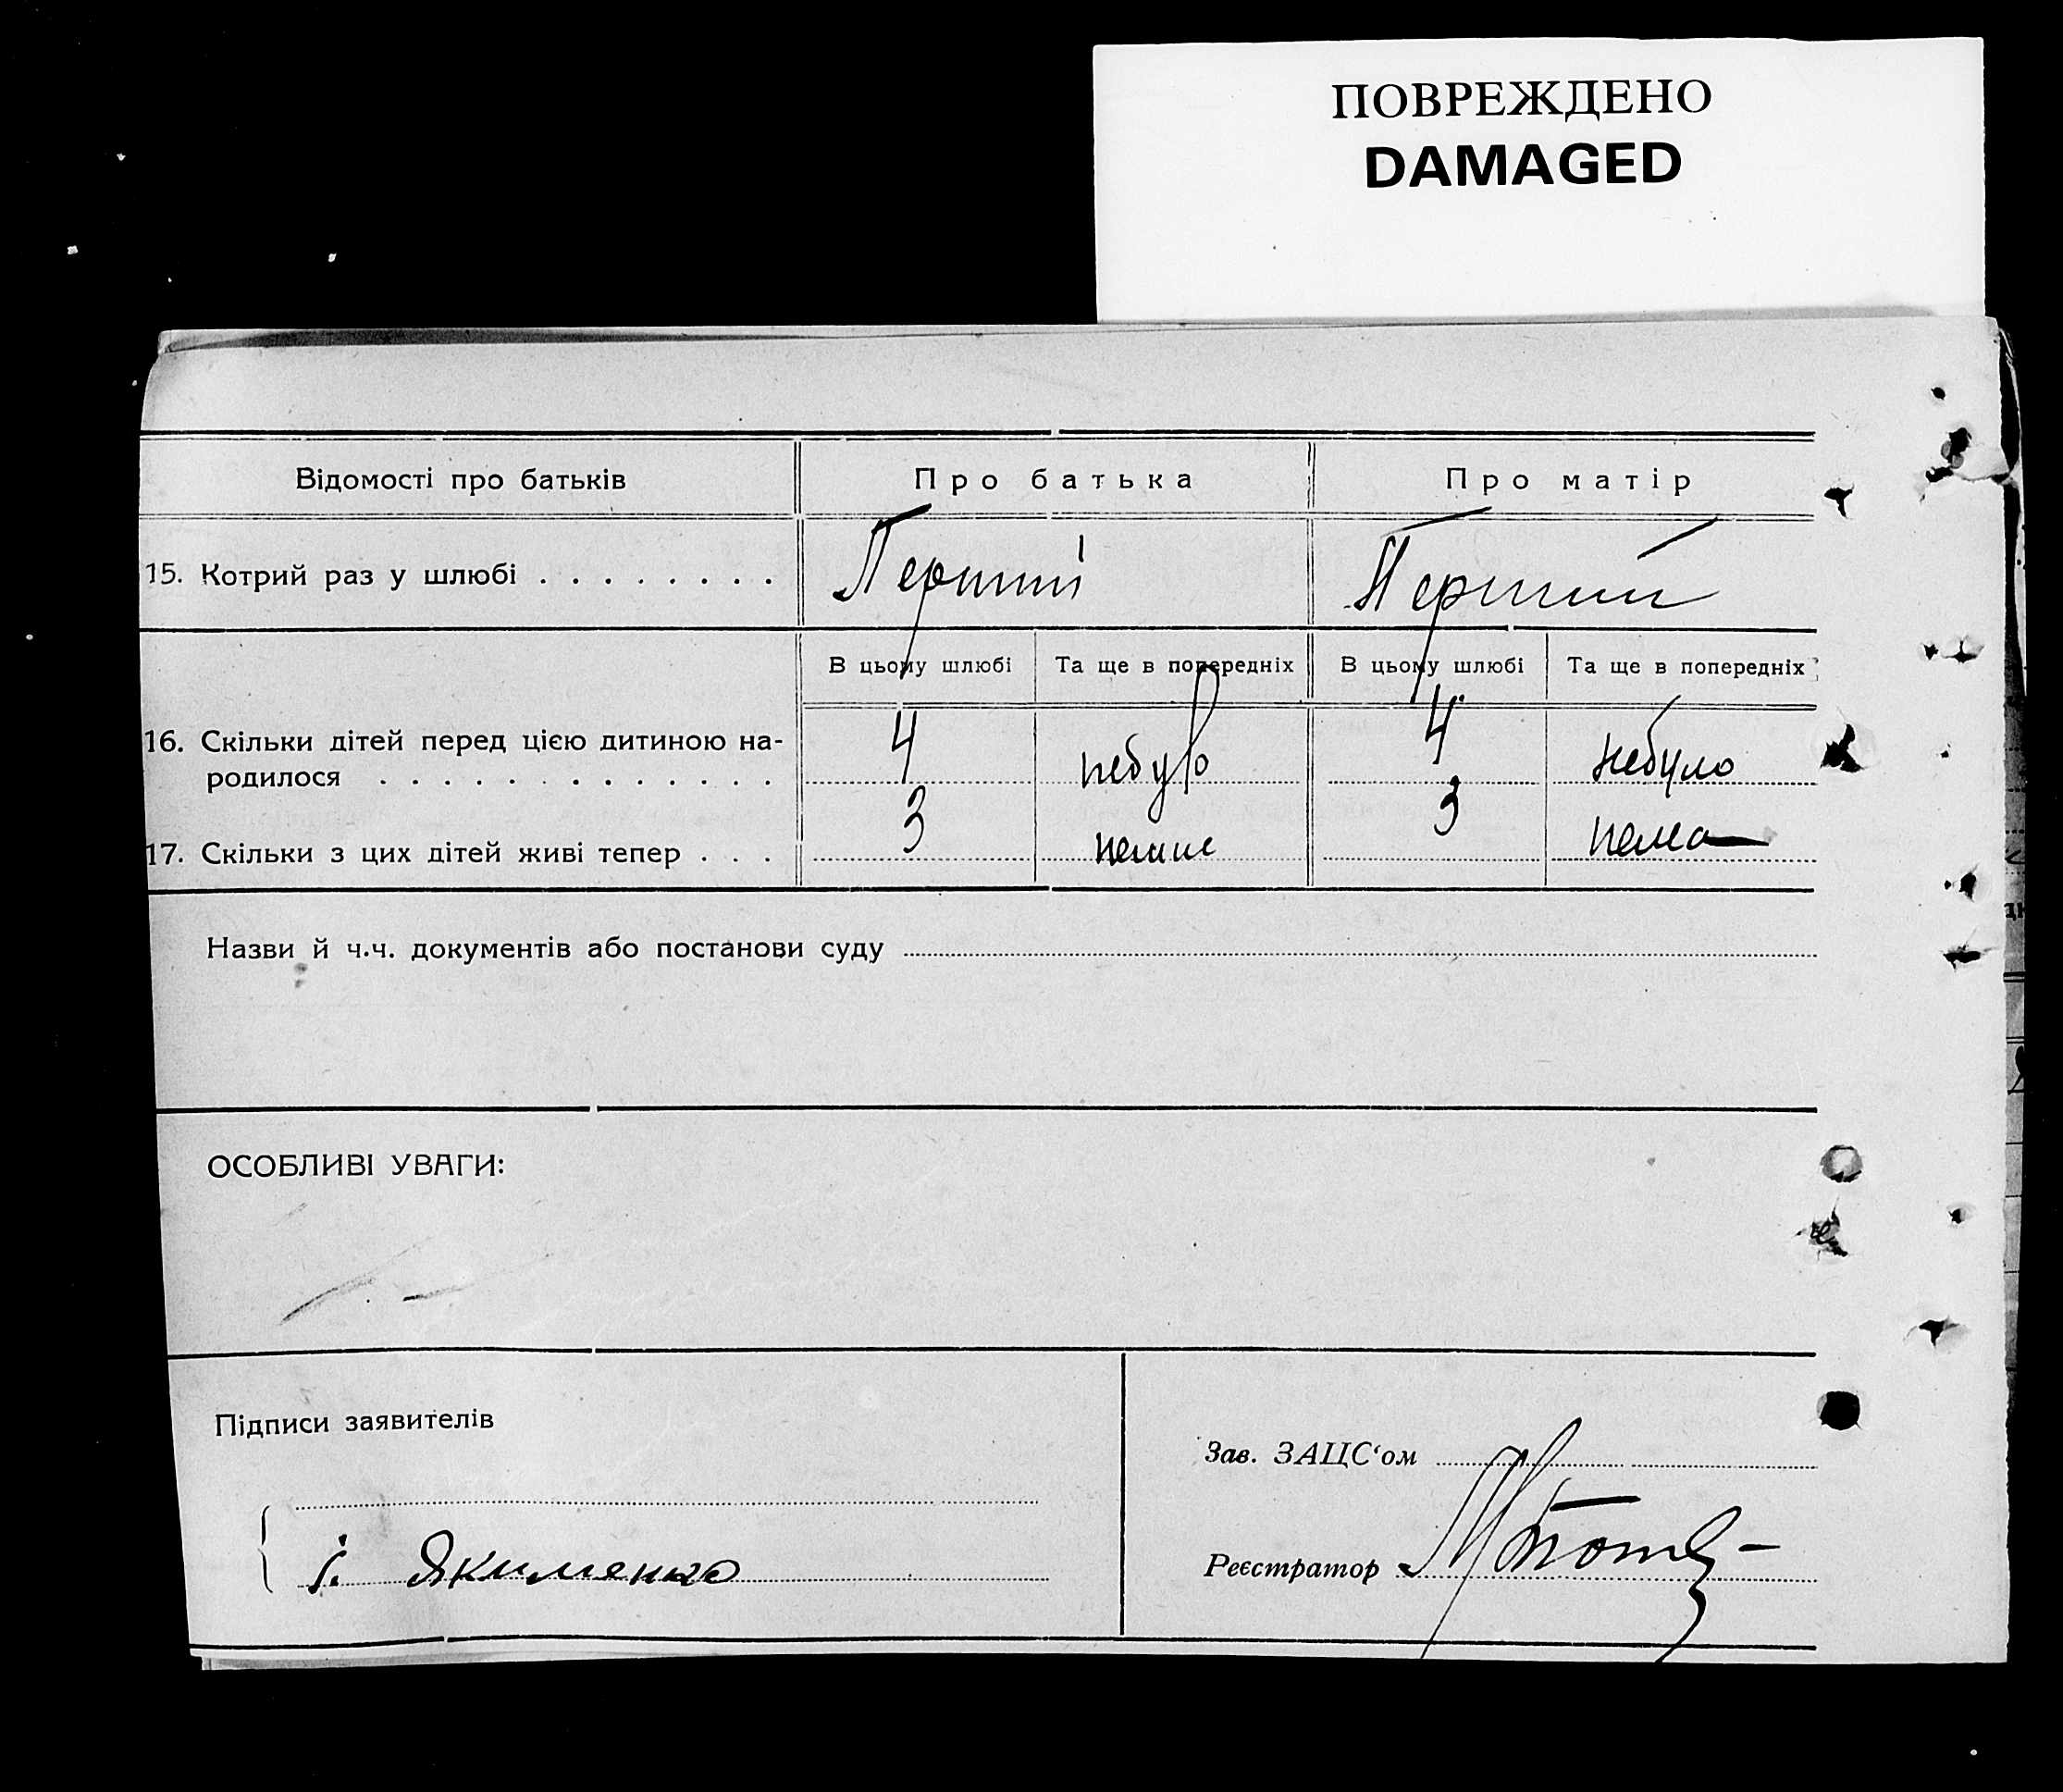 ПОВРЕЖДЕНО
DAMAGED
Відомості про батьків Про батька Про матір
15. Котрий раз у шлюбі . . . . . . . . Перший Перший
В цьому шлюбі Та ще в попередніх В цьому шлюбі Та ще в попередніх
16. Скільки дітей перед цією дитиною на-
родилося . . . . . . . . . . . . . 4 небуло 4 небуло
17. Скільки з цих дітей живі тепер . . . 3 3 нема
Назви й ч.ч. документів або постанови суду
ОСОБЛИВІ УВАГИ:
Підписи заявителів
Зав. ЗАЦС‘ом
і. Якименко
Реєстратор